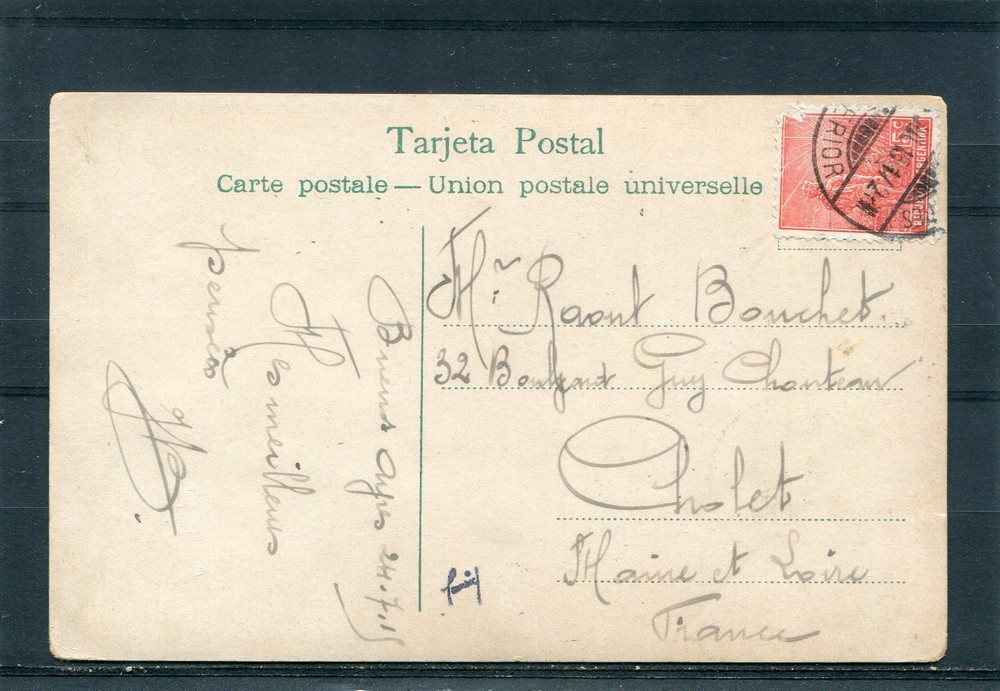 Tarjeta Postal
Carte postale — Union postale universelle
5c
REPUBLICA ARGENTINA
RIOR
Buenos Ayres 24.7.15
Mes meilleures
pensées
Mr. Raoul Bouchet
32 Boulevard Guy Chanteau
Cholet
Maine et Loire
France